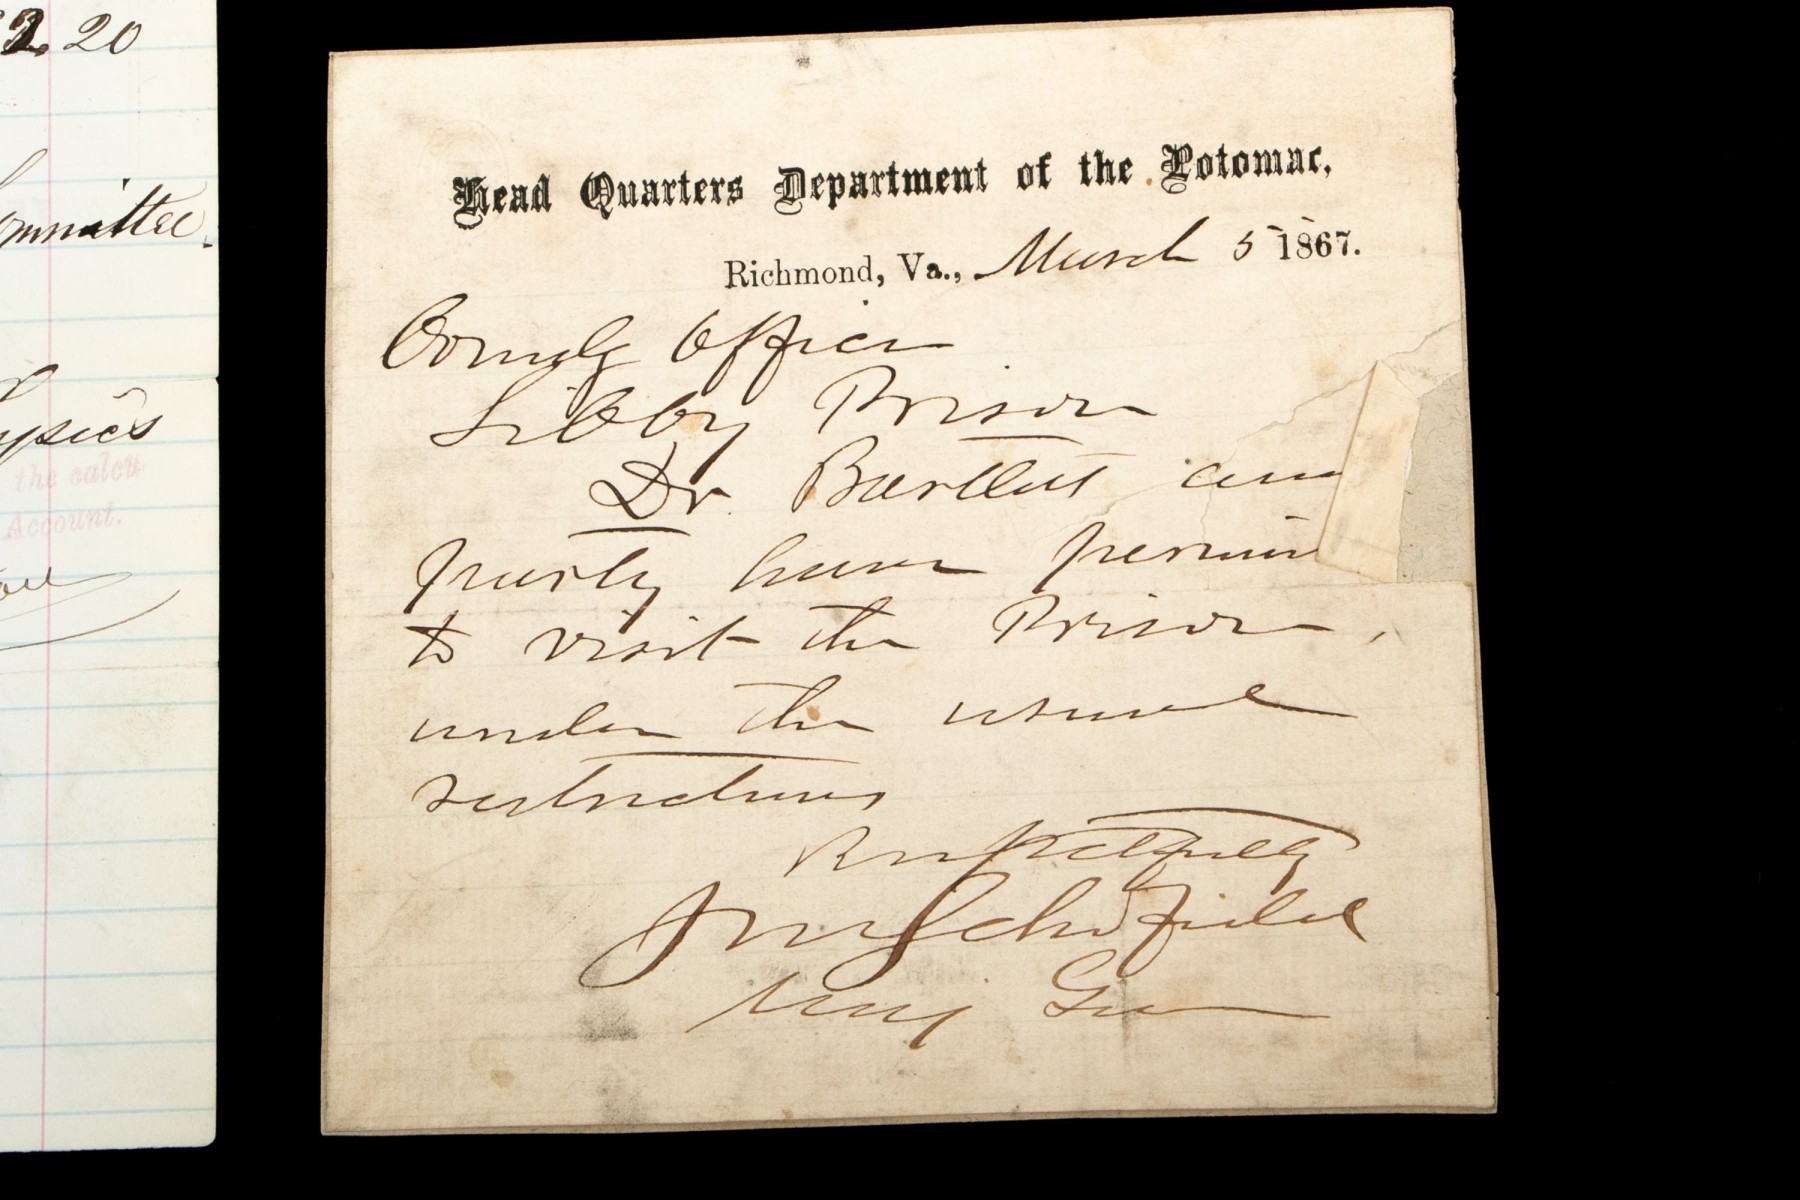 2. 20
ommittee.
ysics
the calcu
Account.
Head Quarters Department of the Potomac,
Richmond, Va., March 5 1867.
Comdg Officer
Libby Prison
Dr. Bartlett an
party have permi
to visit the Prison,
under the usual
restrictions
Respectfully
JM Schofield
Maj Gen